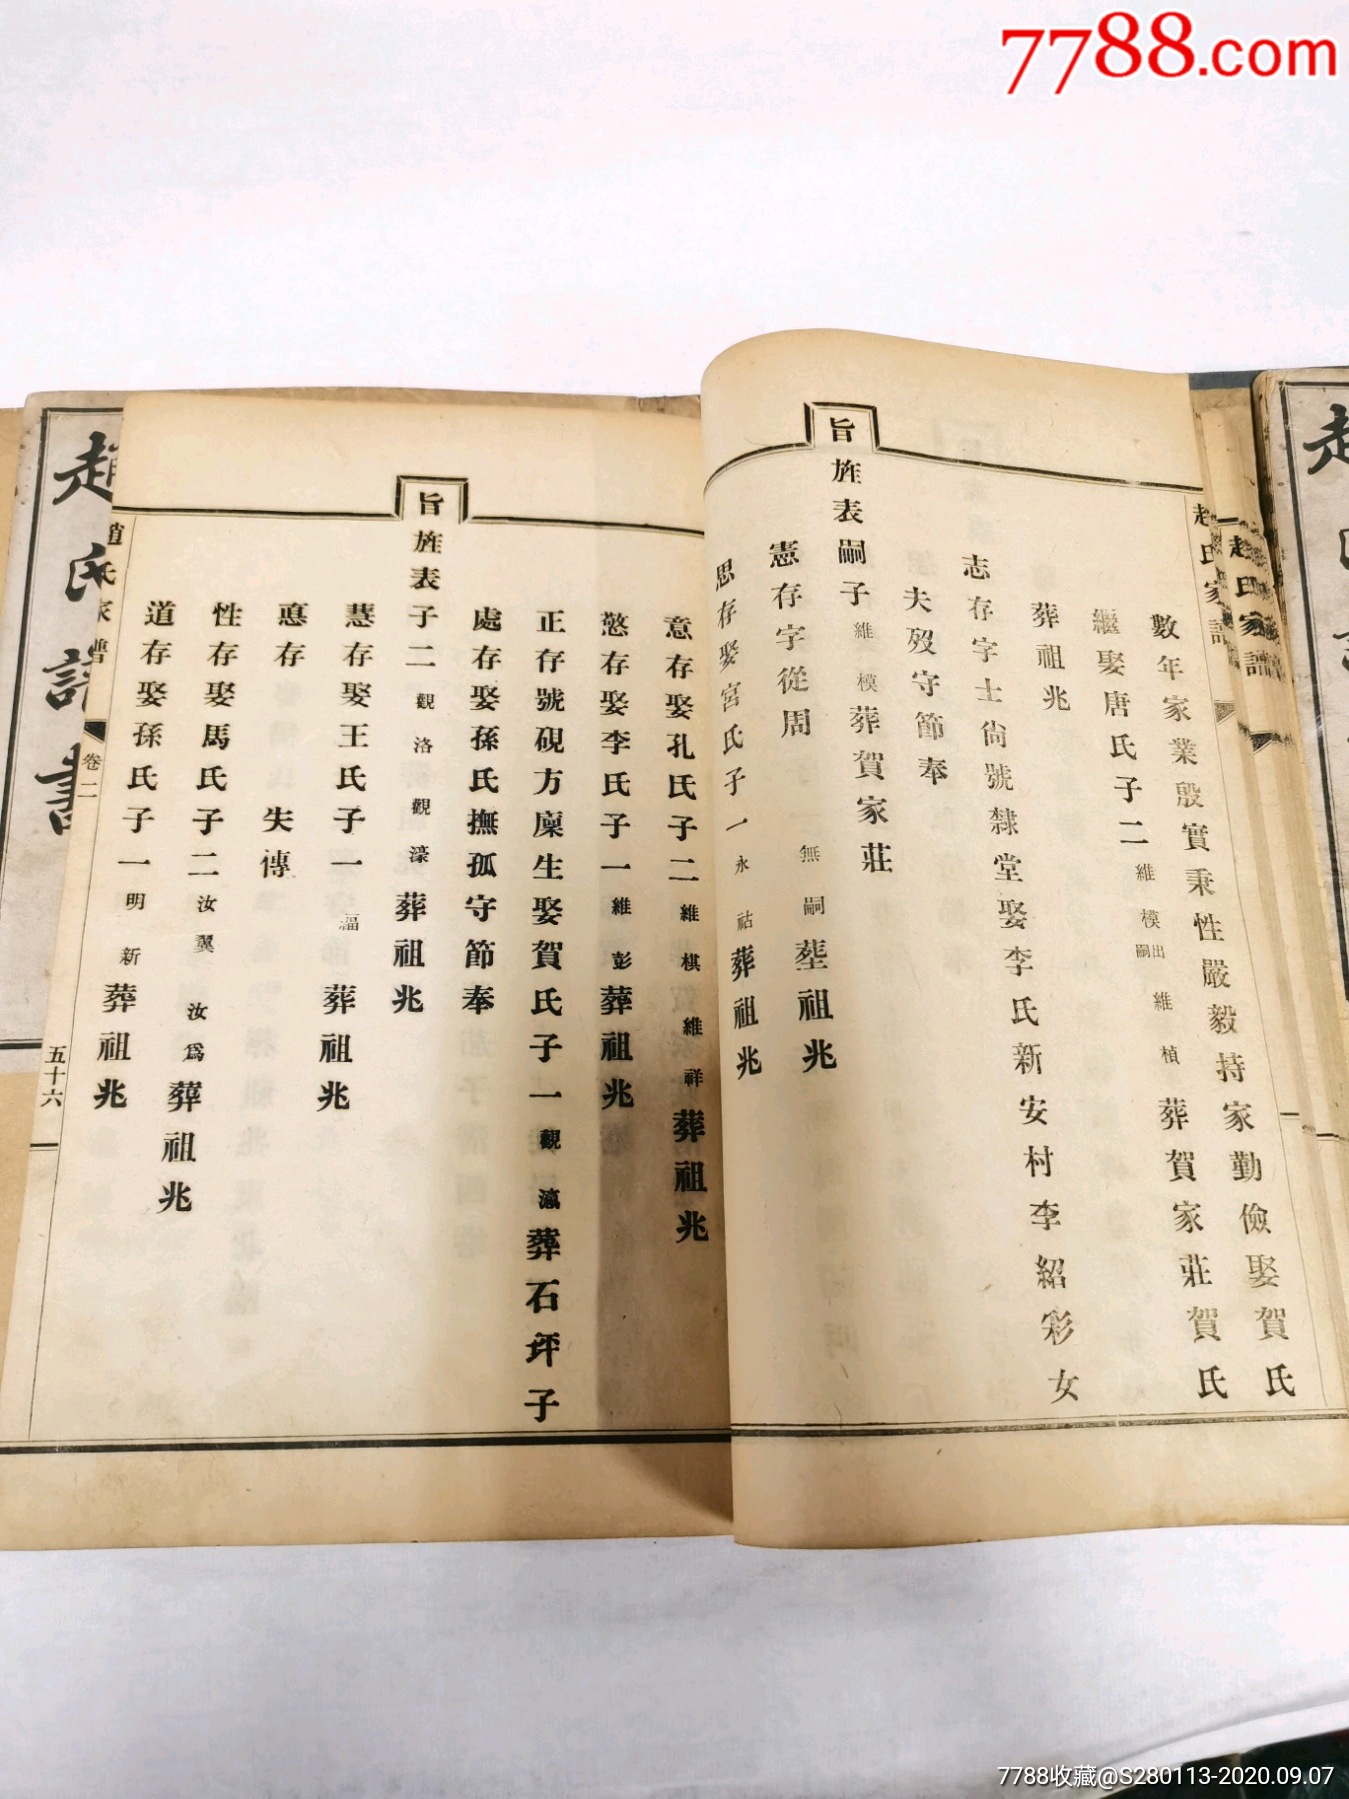 7788.com
數年家業殷實秉性嚴毅持家勤儉娶賀氏
繼娶唐氏子二維模出嗣維楨葬賀家莊賀氏
葬祖兆
志存字士尙號隸堂娶李氏新安村李紹彩女
夫歿守節奉
旨旌表嗣子維模葬賀家莊
憲存字從周無嗣塟祖兆
思存娶宮氏子一永祜葬祖兆
意存娶孔氏子二維棋維祥葬祖兆
慜存娶李氏子一維彭葬祖兆
正存號硯方廩生娶賀氏子一觀瀛葬石坪子
處存娶孫氏撫孤守節奉
旨旌表子二觀洛觀濠葬祖兆
慧存娶王氏子一福葬祖兆
惪存失傳
性存娶馬氏子二汝翼汝爲葬祖兆
道存娶孫氏子一明新葬祖兆
趙氏家譜
卷二
五十六
趙氏譜書
趙氏家譜
7788收藏@S280113-2020.09.07